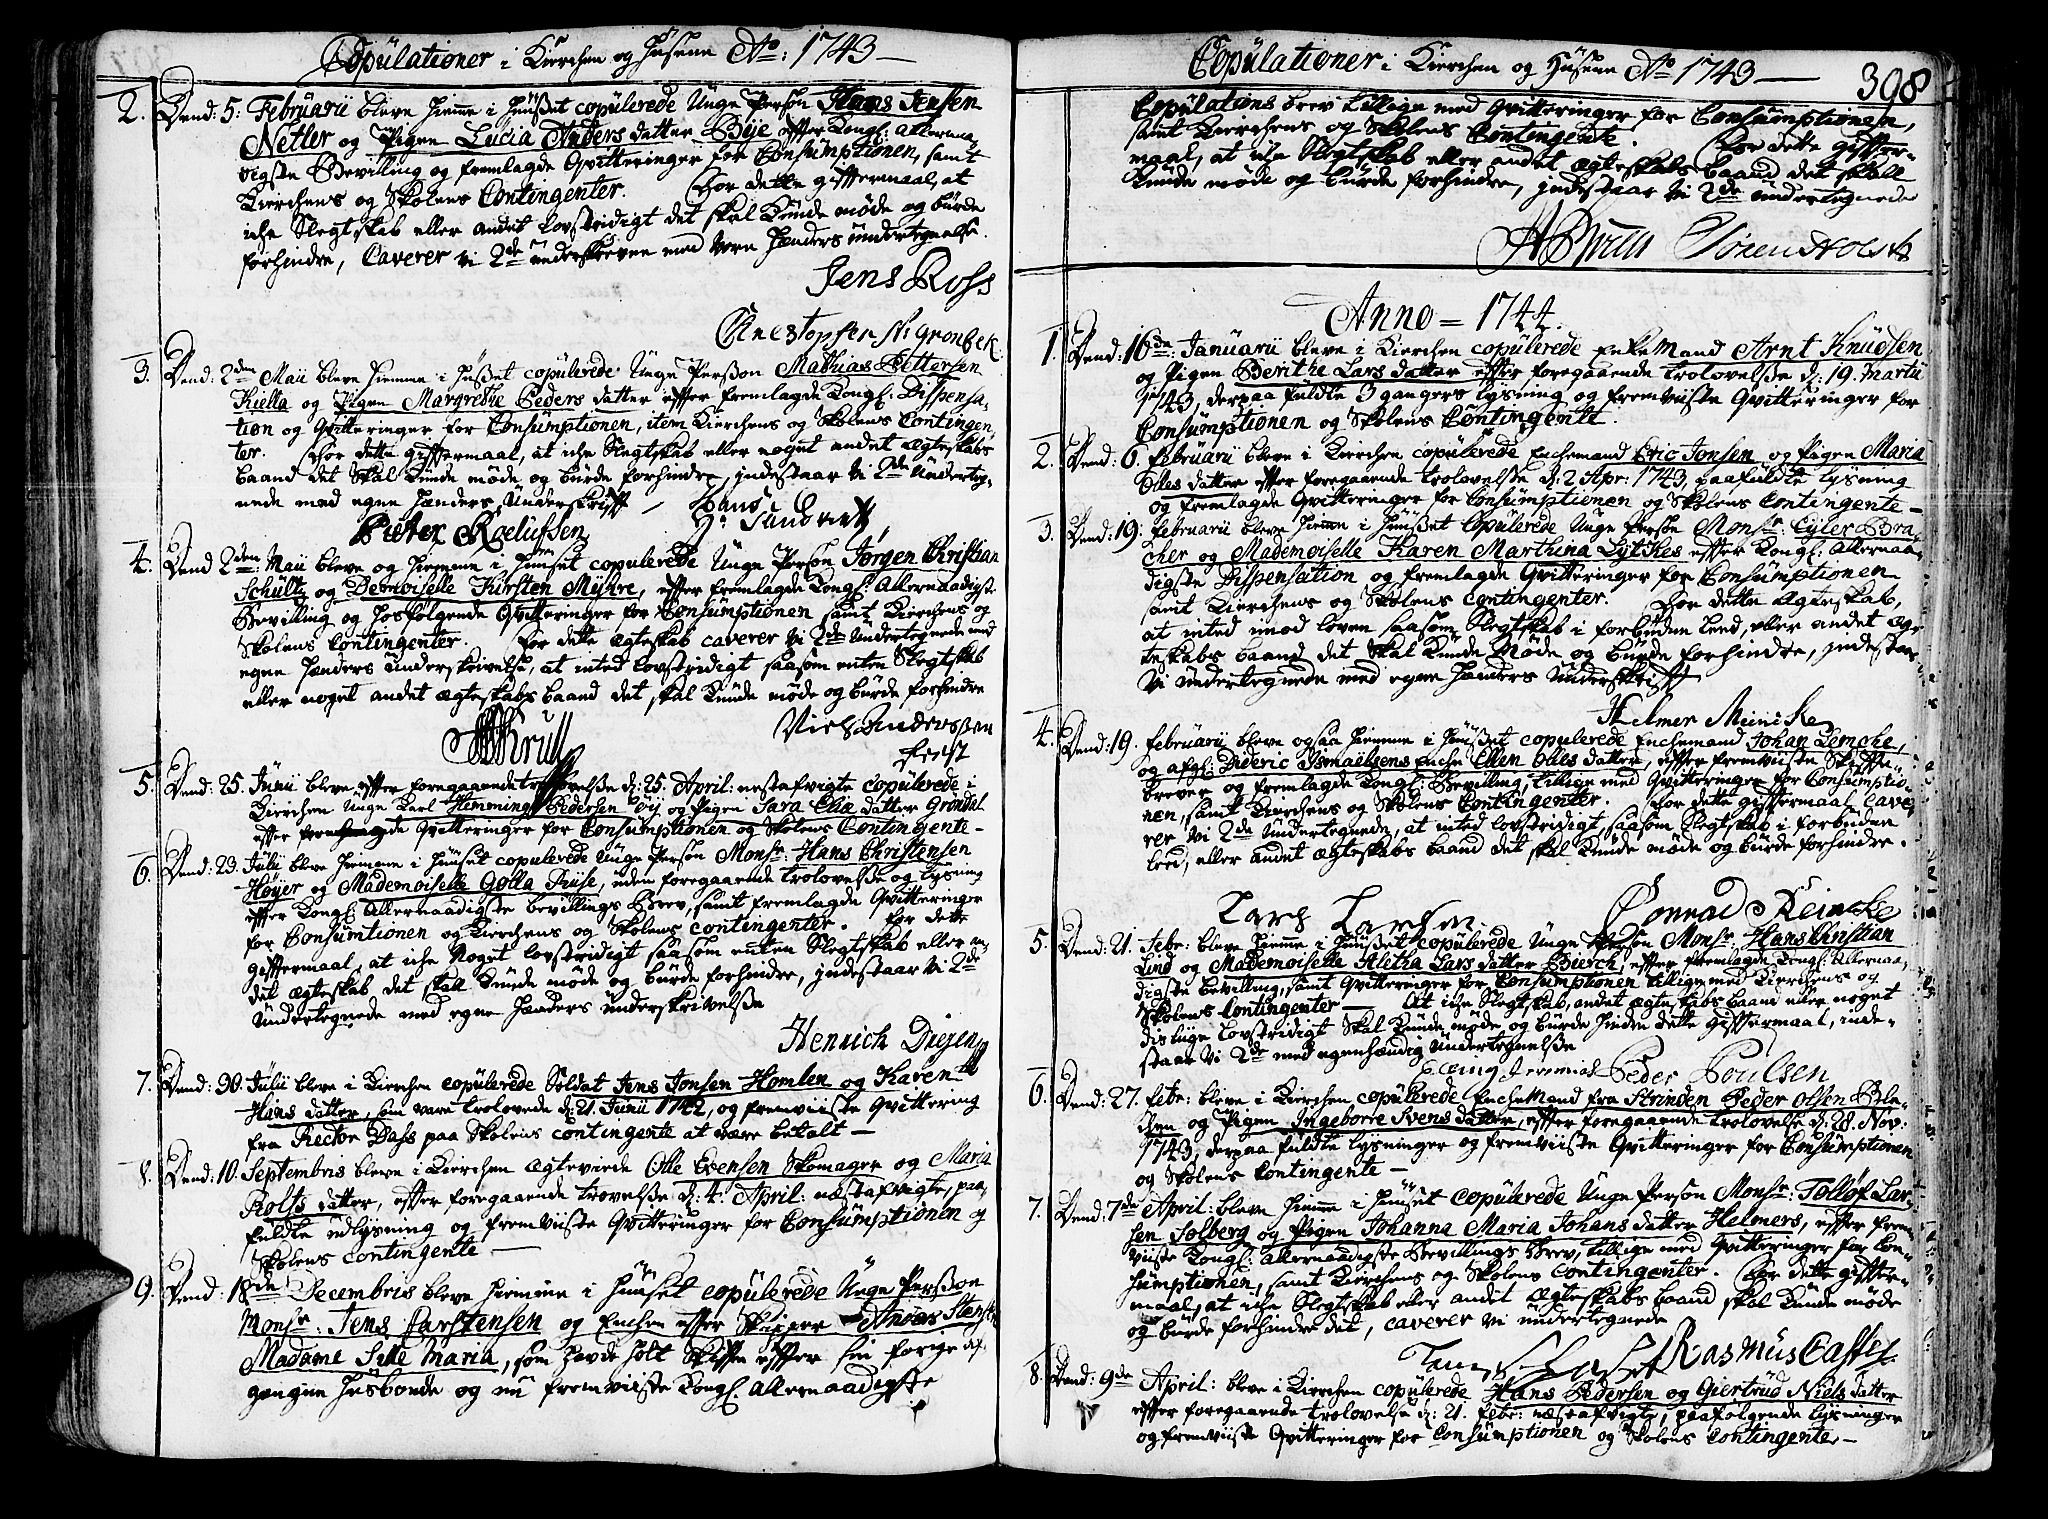 Copülationer i Kierchen og Hüsene Ao: 1743 —
2. Dend: 5. Februarii bleve hieme i Hüset copülerede Unge Person Hans Jensen
Netler og Pigen Lucia Anders datter Bye efter Kongl: allernaa-
digste Bevilling og fremlagde Qvitteringer for Consumptionen, samt
Kierchens og Skolens Contingenter. For dette giftermaal, at
iche Slegtskab eller andet lovstridigt det skal Kunde møde og burde
forhindre, Caverer vi 2de underskrevne med vore Hænders undertegnelse.
Jens Ross
Christopfer Gronbek
3. Dend: 2den Maii bleve hieme i Hüset copülerede Unge Person Mathias Pettersen
Kiella og Pigen Margrethe Peders datter efter fremlagde Kongl: Dispensa-
tion og Qvitteringer for Consumptionen, item Kierchens og Skolens Contingen-
ter. For dette giftermaal, at iche Slegtskab eller noget andet Ægteskabs
baand det skal Kunde møde og burde forhindre, indestaar vi 2de Underteg-
nede med egne Hænders Underskrift —
Pieter Roelufsen
4. Dend 2den: Maii bleve og hieme i Hüset copülerede Unge Person Jørgen Christian
Schültz og Demoiselle Kirsten Myhre, efter fremlagde Kongl: Allernaadigste
Bevilling og hosfølgende Qvitteringer for Consumptionen samt Kierchens og
Skolens Contingenter. For dette Ægteskab caverer vi 2de Undertegnede med
egne Hænders Underskrivelse, at inted lovstridigt saasom enten Slegtskab
eller noget andet Ægteskabs baand det skal Kunde møde og burde forhindre
Krull
Niels Anderssen
5. Dend: 25. Junii bleve efter foregaaende trolovelse d: 25. April: nestafvigte copülerede i
Kierchen Unge Karl Hemming Pedersen og Pigen Sara Elia datter Grøndal
efter fremlagde Qvitteringer for Consumptionen og Skolens Contingente —
6. Dend: 23. Julii bleve hieme i Hüset copülerede Unge Person Monsr: Hans Christensen
Høyer og Mademoiselle Golla Friise, uden foregaaende trolovelse og Lysning
efter Kongl: Allernaadigste bevillings Brev, samt fremlagde Qvitteringer
for Consumtionen og Kierchens og Skolens contingenter. For dette
giftermaal, at iche Noget lovstridigt saasom enten Slegtskab eller an-
det Ægteskab det skall Kunde møde og burde forhindre, indestaar vi 2de
Undertegnede med egne Hænders underskrivelse
Henrich
7. Dend: 30. Julii bleve i Kierchen copülerede Soldat Jens Jonsen Homlen og Karen
Hans datter, som vare trolovede d: 21. Junii 1742, og fremviiste Qvittering
fra Rector Dass paa Skolens contingente at være betalt —
8. Dend: 10. Septembris bleve i Kierchen Ægteviede Olle Evensen Skomager og Maria
Rolfs datter, efter foregaaende trolovelse d: 4. April: næstafvigte, paa-
fuldte udlysning og fremviiste Qvitteringer for Consumptionen og
Skolens contingente —
9. Dend: 18de Decembris bleve hieme i Hüset copülerede Unge Person
Monsr: Jens Carstensen og Enchen efter Skipper Andres
Madame Sille Maria, som havde holt Skifte efter sin forige af-
gangne Husbonde og nu fremviiste Kongl: Allernaadigste
Copülationer i Kierchen og Hüsene Ao 1743 —
398
Copulations brev tillige med Qvitteringer for Consumptionen,
samt Kierchens og Skolens Contingente. For dette gifter-
maal, at iche Slegtskab eller andet Ægteskabs baand det skall
Kunde møde og burde forhindre, indestaar vi 2de undertegnede
Søren Holst
Anno = 1744.
1. Dend: 16de: Januarii bleve i Kierchen copülerede Enkemand Arnt Knüdsen
og Pigen Berithe Lars datter efter foregaaende trolovelse d: 19. Martii
1743, derpaa fuldte 3 gangers lysning og fremviiste Qvitteringer for
Consumptionen og Skolens Contingente.
2. Dend: 6. februarii bleve i Kierchen copülerede Enchemand Eric Jonsen og Pigen Maria
Olles datter efter foregaaende trolovelse d: 2 Apr: 1743, paafuldte lysning
og fremlagde Qvitteringer for Consumptionen og Skolens Contingente —
3. Dend: 19: februarii bleve hieme i Hüset Copülerede Unge Person Monsr: Eyler Bra-
cher og Mademoiselle Karen Marthina Lytkes efter Kongl: Allernaa-
digste Dispensation og fremlagde Qvitteringer for Consumptionen
samt Kierchens og Skolens contingenter. For dette Ægteskab,
at inted imod loven saasom Slegtskab i forbuden Leed, eller andet Æg-
teskabs baand det skal Kunde møde og burde forhindre, indestaar
Vi Undertegnede med egne Hænders Underskrift
Helmer Meincke
4. Dend: 19. februarii bleve ogsaa hieme i Hüset copülerede Enchemand Johan Lemche,
og afgl: Dideric Ismaelsens Enche Ellen Olles datter, efter fremviiste Skifte-
brever og fremlagde Kongl: Bevilling, tillige med Qvitteringer for Consumptio-
nen, samt Kierchens og Skolens Contingenter. For dette giftermaal Cave-
rer Vi 2de Undertegnede, at inted lovstridigt, saasom Slegtskab i forbuden
leed, eller andet Ægteskabs baand det skal Kunde møde og burde forhindre.
Lars Larsen
Conrad Reincke
5. Dend: 21. Febr: bleve hieme i Hüset copülerede Unge Person Monsr: Hans Christian
Lind og Mademoiselle Aletha Lars datter Bierch, efter fremlagde Kongl: Allernaa-
digste Bevilling, samt Qvitteringer for Consumptionen tillige med Kierchens og
Skolens Contingenter — At iche Slegtskab, andet Ægteskabs baand eller noget
deslige lovstridigt skal Kunde møde og burde hindre dette giftermaal, inde-
staar Vi 2de med egenhændig Undertegnelse
Peder Poulsen
6. Dend: 27. febr: bleve i Kierchen copülerede Enchemand fra Strinden Peder Olsen
og Pigen Ingeborre Svens datter, efter foregaaende trolovelse d: 28. Nov:
1743, derpaa fuldte lysninger og fremviiste Qvitteringer for Consumptionen
og Skolens Contingente —
7. Dend: 7de April: bleve hieme i Hüset copülerede Unge Person Monsr: Tolløf Lar-
sen Solberg og Pigen Johanna Maria Johans datter Helmers, efter frem-
viiste Kongl: allernaadigste Bevillings Brev, tillige med Qvitteringer for Con-
sumptionen, samt Kierchens og Skolens contingenter. For dette gifter-
maal, at iche Slegtskab eller andet Ægteskabs baand skal Kunde møde
og burde forhindre det, caverer vi undertegnede
Rasmus
8. Dend: 9de April: bleve i Kierchen copülerede Hans Pedersen og Giertrud Niels datter
efter foregaaende trolovelse d: 21. febr: næstafvigte, paafølgende lysninger
og fremviiste Qvitteringer for Consumptionen og Skolens Contingente —